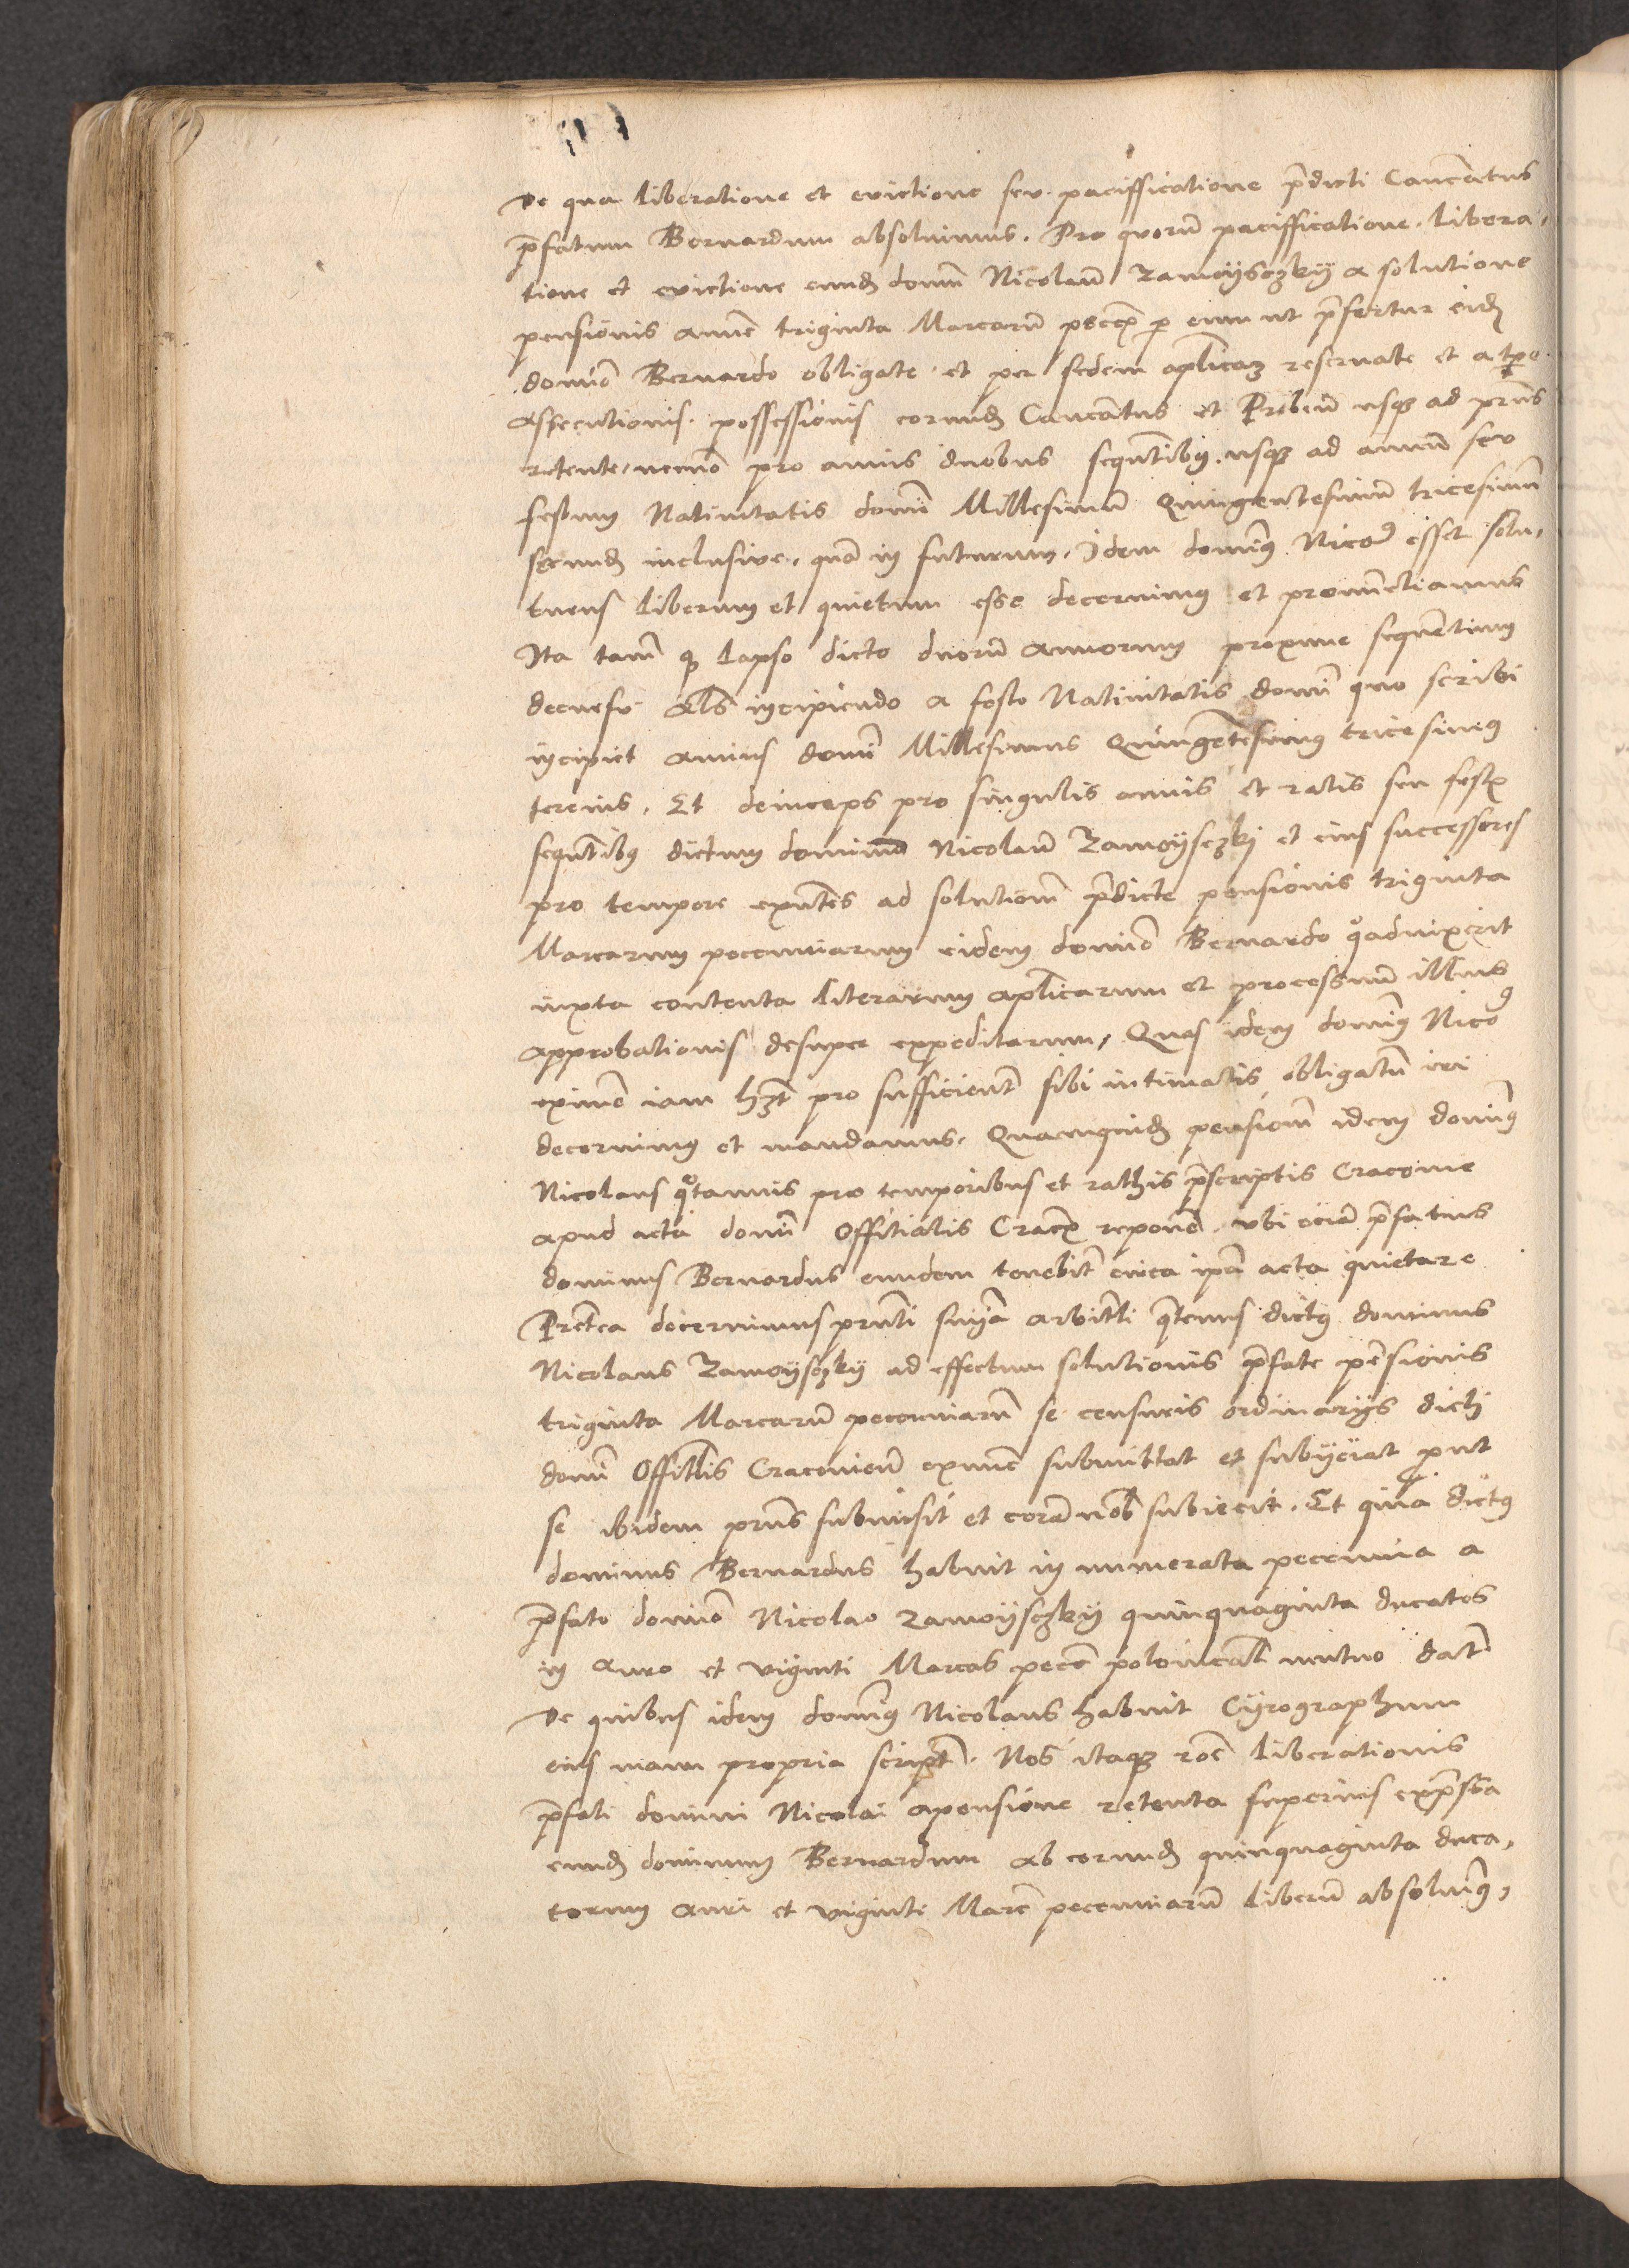 De qua liberatione et evictione seu pacifficatione p̄dicti Canc̄atus
p̄fatum Bernardum absoluimus. Pro quorū pacifficatione. libera,
tione et evictione eund̄ domn̄ Nicolaū Zamoÿsczkÿ a solutione
pensionis annue triginta Marcarū per eum ut p̄fertur eid̄
domnō Bernardo obligate et per sedem aplicā reseruate et a tpe
assecutionis possessionis eorund̄ Cancātus et usqꝫ ad prn̄s
retente, necnō pro annis duobus sequn̄tibꝰ usqꝫ ad annū seu
festum Natiuitatis domī Millesimū Quingentesimū tricesimū
secund̄ inclusiue, in futurum. Idem domiꝰ Nico esset solu,
turus liberum et quietum esse decernimꝰ et pronunctiamus
Ita tamē qꝫ lapso dicto duorū annorum proxime sequentium
decursu als incipiendo a festo Natiuitatis domī quo scribi
incipiet annus domī Millesimus Quingētesimus tricesimus
tercius. Et deinceps pro singulis annis et ratis seu festis
sequn̄tibꝰ dictum dominum Nicolaū Zamoÿsczkj et eius successores
pro tempore exn̄tes ad solutionem p̄dicte pensionis triginta
Marcarum pecuniarum eidem domnō Bernardo quoaduixerit
iuxta contenta literarum aplicarum et processuum illius
approbationis desuper expeditarum, Quas idem domiꝰ Nicoꝰ
exnūc iam hꝫt pro sufficient sibi intimatis obligatū iri
decernimꝰ et mandamus. Quamquid̄ pensionē idem domiꝰ
Nicolaus quotannis pro temporibus et rathis p̄scriptis Cracouie
apud acta domī Offitialis Crac reponet. ubi eciā p̄fatus
dominus Bernardus eundem tenebit circa ipā acta quietare
Preterea decernimus prn̄ti snīa arbitrli qtenus dictꝰ dominus
Nicolaus Zamoÿsczkÿ ad effectum solutionis p̄fate pēsionis
triginta Marcarū pecuniarū se censuris ordinarijs dicti
domī Offitlis Cracouien̄ exnūc submittat et subijciat prut
se ibidem prn̄s submisit et corā nob subiecit. Et quia dictꝰ
dominus Bernardus habuit in numerata pecunia a
p̄fato domnō Nicolao Zamoÿsczkÿ quinquaginta ducatos
in auro et viginti Marcas pecc̄ polonical mutuo dat
De quibus idem domiꝰ Nicolaus habuit Cÿrographum
eius manu propria script. Nos itaqꝫ roē liberationis
p̄fati domini Nicolai apensione retenta superius exp̄ssa
eund̄ dominum Bernardum ab eorund̄ quinquaginta duca,
torum auri et viginti Marc̄ pecuniarū liberū absoluimꝰ,